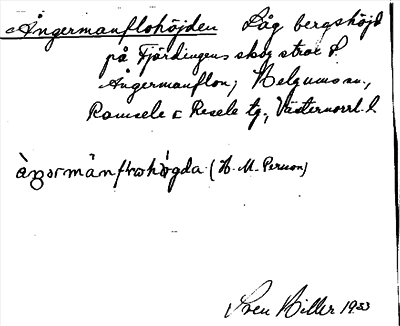 Ångermanflohöjden Låg bergshöjd
på Fjärdingens skog strax S.
Ångermanflon; Helgums sn.,
Ramsele o Resele tg., Västernorrl. l
(H. M. Persson)
Sven Hiller 1933